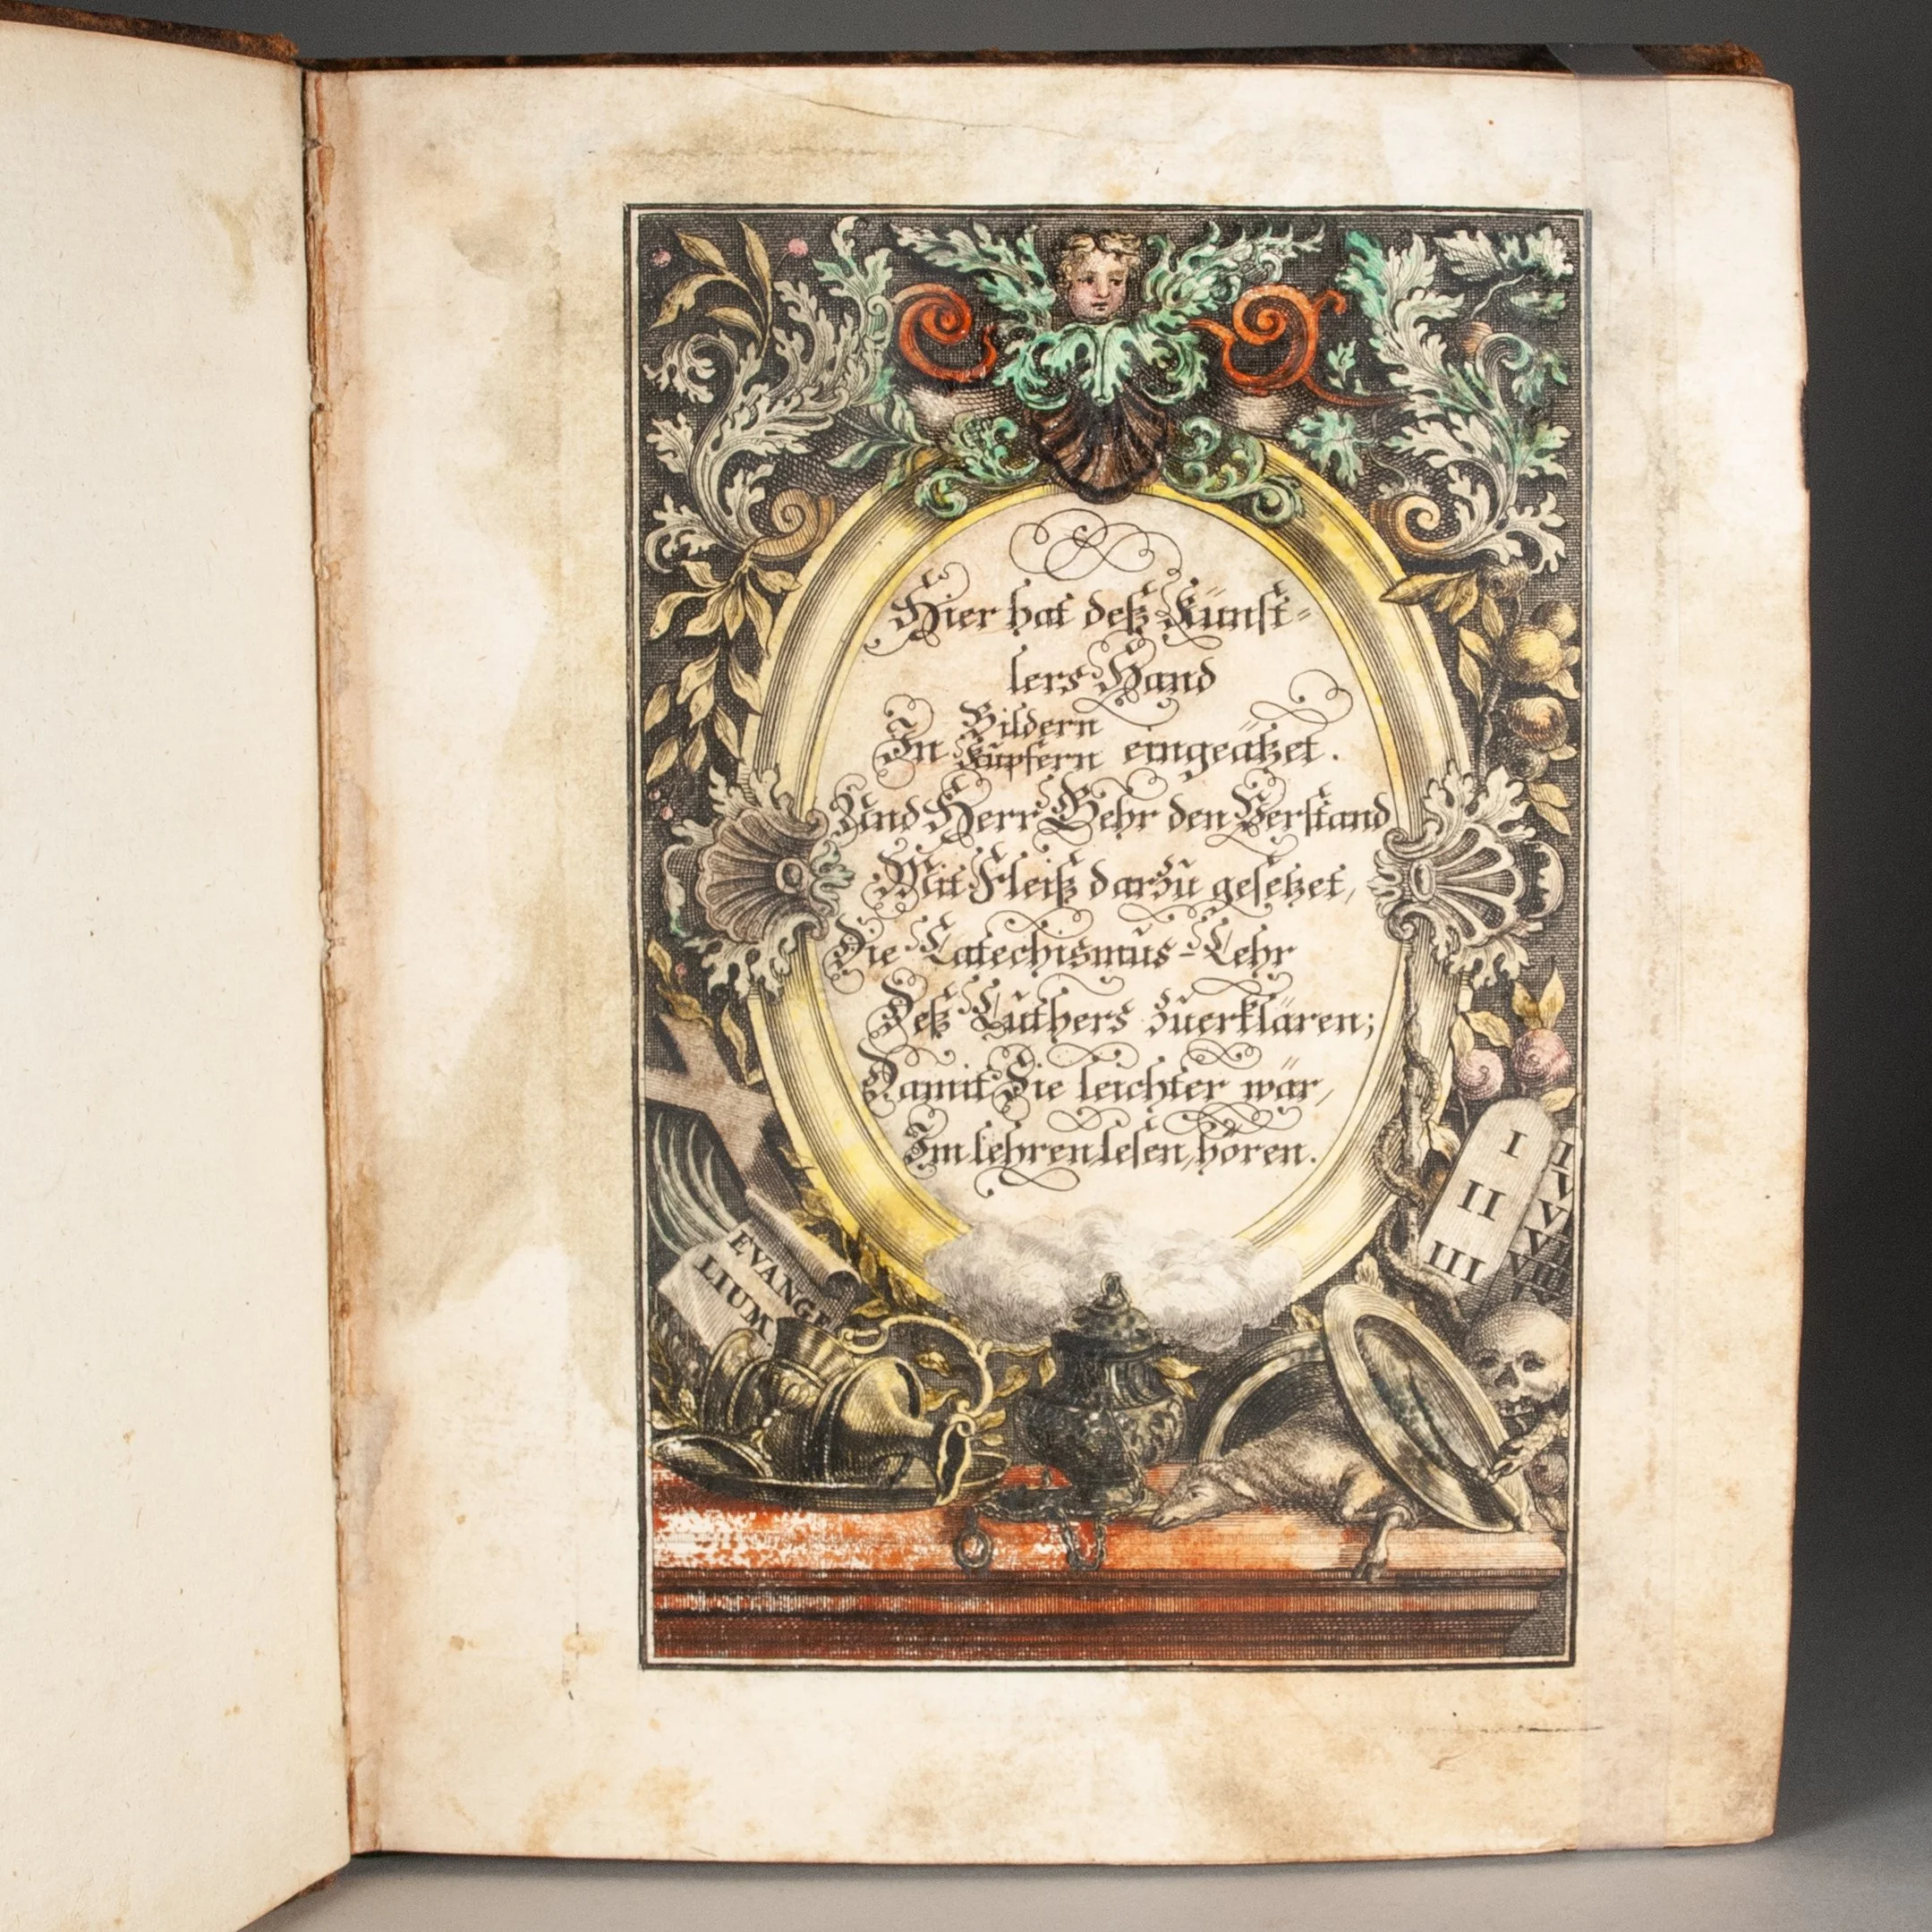 Hier hat deß Künst-
lers Hand
In Bildern
Kupfern eingeätzet.
Und Herr Gehr den Verstand
Mit Fleiß darzu gesetzet,
Die Catechismus-Lehr
Deß Luthers zuerklären;
Damit Sie leichter wär,
Im lehren lesen, hören.
EVANGE
LIUM.
I
II
III